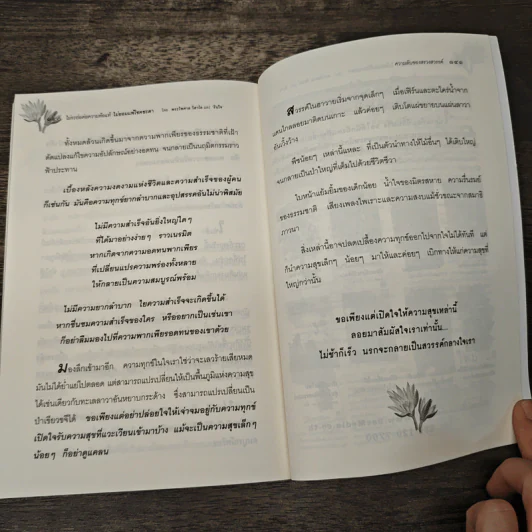 ทั้งหมดล้วนเกิดขึ้นมาจากความพากเพียรของธรรมชาติที่เฝ้า
ดัดแปลงแก้ไขความอัปลักษณ์อย่างอดทน จนกลายเป็นนฤมิตกรรมราว
ฟ้าประทาน
เบื้องหลังความงดงามแห่งชีวิตและความสำเร็จของผู้คน
ก็เช่นกัน มันคือความทุกข์ยากลำบากและอุปสรรคอันไม่น่าพิสมัย
ไม่มีความสำเร็จอันยิ่งใหญ่ใดๆ
ที่ได้มาอย่างง่ายๆ ราวเนรมิต
หากเกิดจากความอดทนพากเพียร
ที่เปลี่ยนแปรความพร่องทั้งหลาย
ให้กลายเป็นความสมบูรณ์พร้อม
ไม่มีความยากลำบาก ใยความสำเร็จจะเกิดขึ้นได้
หากชื่นชมความสำเร็จของใคร หรืออยากเป็นเช่นเขา
ก็อย่าลืมมองไปที่ความพากเพียรอดทนของเขาด้วย
มองลึกเข้ามาอีก ความทุกข์ในเราใช่ว่าจะเลวร้ายเสียหมด
มันไม่ได้ย่ำแย่ไปตลอด แต่สามารถแปรเปลี่ยนให้เป็นพื้นภูมิแห่งความสุข
ได้เช่นเดียวกับทะเลลาวาอันหยาบกระด้าง ซึ่งสามารถแปรเปลี่ยนเป็น
ป่าเขียวขจีได้ ขอเพียงแต่อย่าปล่อยใจให้เจ่าจมอยู่กับความทุกข์
เปิดใจรับความสุขที่แวะเวียนเข้ามาบ้าง แม้จะเป็นความสุขเล็กๆ
น้อยๆ ก็อย่าดูแคลน
ความลับของสรวงสวรรค์
สวรรค์ในฮาวายเริ่มจากจุดเล็กๆ เมื่อเฟิร์นและตะไคร่น้ำจาก
แดนไกลลอยมาติดบนเกาะ แล้วค่อยๆ เติบโตแผ่ขยายบนแผ่นลาวา
อันเวิ้งว้าง
พืชน้อยๆ เหล่านี้แหละ ที่เป็นตัวนำทางให้ไม้อื่นๆ ได้เติบใหญ่
จนกลายเป็นป่าใหญ่ที่เต็มไปด้วยชีวิตชีวา
ใบหน้าแย้มยิ้มของเด็กน้อย น้ำใจของมิตรสหาย ความรื่นรมย์
ของธรรมชาติ เสียงเพลงไพเราะและความสงบแม้ชั่วขณะจากสมาธิ
ภาวนา
สิ่งเหล่านี้อาจปลดเปลื้องความทุกข์ออกไปจากใจไม่ได้ทันที แต่
ก็นำความสุขเล็กๆ น้อยๆ มาให้และค่อยๆ เบิกทางให้แก่ความสุขที่
ใหญ่กว่านั้น
ขอเพียงแต่เปิดใจให้ความสุขเหล่านี้
ลอยมาสัมผัสใจเราเท่านั้น...
ไม่ช้าก็เร็ว นรกจะกลายเป็นสวรรค์กลางใจเรา